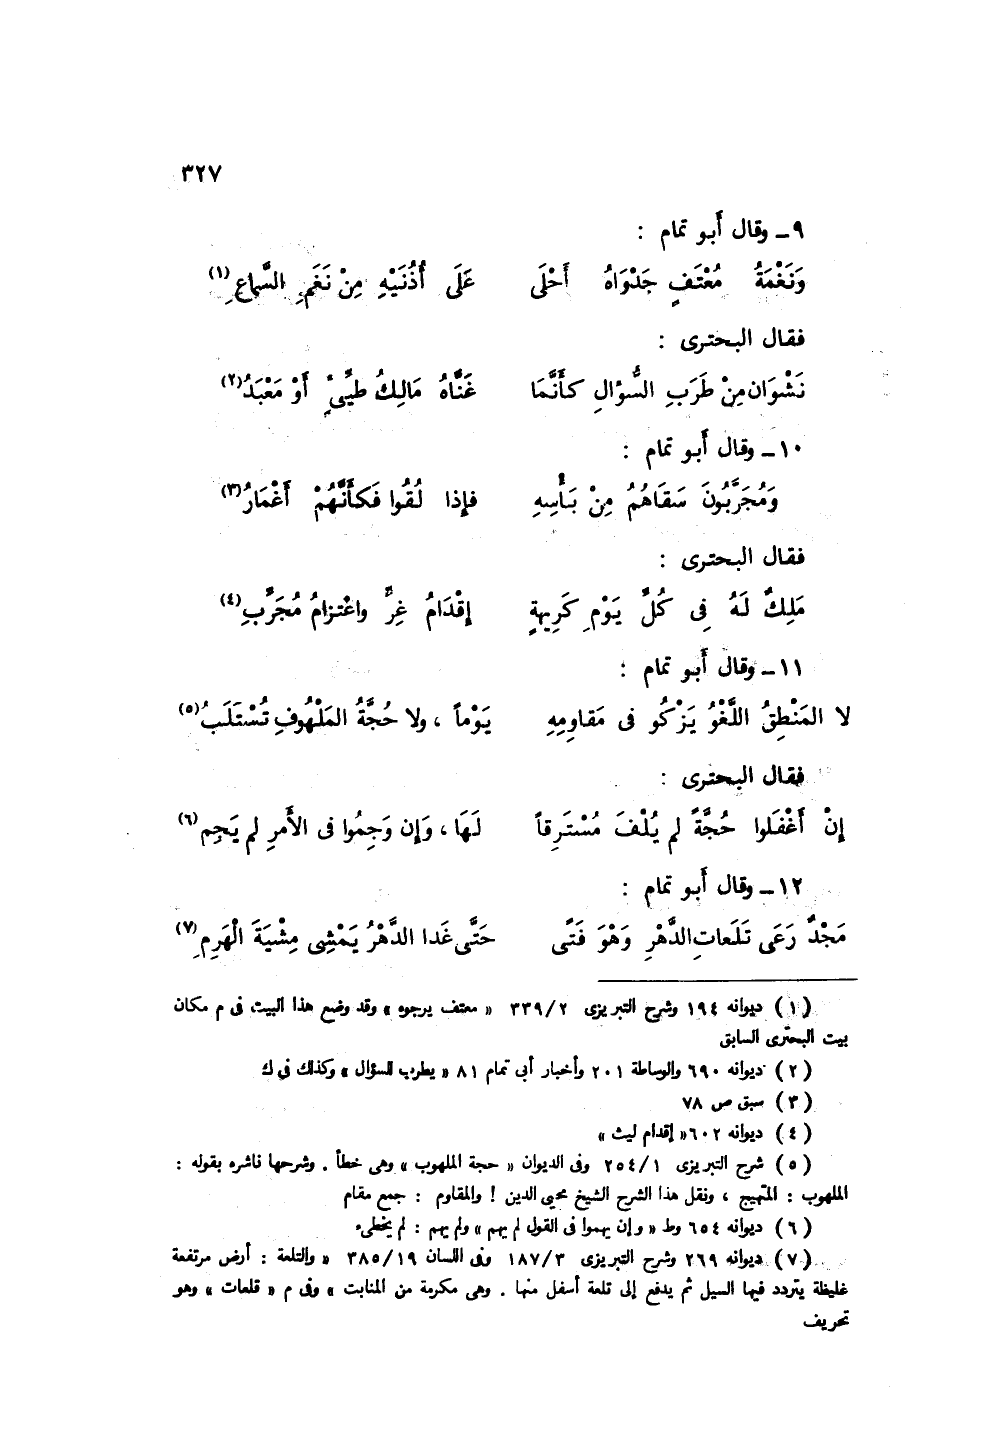 ٣٢٧
٩ـ وقال أَبو تمام :
وَنَغْمَةُ مُعْتَفٍ جَدْوَاهُ أَحْلَى عَلَى أُذُنَيْهِ مِنْ نَغَمِ السَّماعِ (١)
فقال البحترى :
نَشْوَان مِنْ طَرَبِ السُّؤالِ كأَنَّمَا غَنَّاهُ مَالِكُ طيِّىءٍ أَوْ مَعْبَدُ (٢)
١٠ـ وقال أَبو تمام :
وَمُجَرَّبُونَ سَقَاهُمُ مِنْ بَأْسِهِ فإذا لُقُوا فَكأَنَّهُمْ أَغْمَارُ (٣)
فقال البحترى :
مَلِكٌ لَهُ فِى كُلِّ يَوْمِ كَرِيهةٍ إقْدَامُ غِرٍّ واعْتزامُ مُجَرَّبِ (٤)
١١ـ وقال أَبو تمام :
لا المَنْطِقُ اللَّغْوُ يَزْكُو فى مَقاوِمِهِ يَوْماً ، ولا حُجَّةُ المَلْهُوفِ تُسْتَلَبُ (٥)
فقال البحترى :
إنْ أَغْفَلوا حُجَّةً لم يُلْفَ مُسْتَرِقاً لَهَا ، وَإن وَجِمُوا فى الأَمرِ لم يَجِم (٦)
١٢ـ وقال أَبو تمام :
مَجْدٌ رَعَى تَلَعاتِ الدَّهْرِ وَهْوَ فَتًى حَتَّى غَدا الدَّهْرُ يَمْشِى مِشْيَةَ الْهَرِمِ (٧)
(١) ديوانه ١٩٤ وشرح التبريزى ٣٣٩/٢ « معتف يرجوه » وقد وضع هذا البيت فى م مكان
بيت البحترى السابق
(٢) ديوانه ٦٩٠ والوساطة ٢٠١ وأخبار أبى تمام ٨١ « يطرب السؤال » وكذلك فى ك
(٣) سبق ص ٧٨
(٤) ديوانه ٦٠٢ « إقدام ليث »
(٥) شرح التبريزى ٢٥٤/١ وفى الديوان « حجة الملهوب » وهى خطأ . وشرحها ناشره بقوله :
الملهوب : المتهيج ، ونقل هذا الشرح الشيخ محيى الدين ! والمقاوم : جمع مقام
(٦) ديوانه ٦٥٤ وط « وإن يهموا فى القول لم يهم » ولم يهم : لم يخطىء
(٧) ديوانه ٢٦٩ وشرح التبريزى ١٨٧/٣ وفى اللسان ٣٨٥/١٩ « والتلعة : أرض مرتفعة
غليظة يتردد فيها السيل ثم يدفع إلى تلعة أسفل منها . وهى مكرمة من المنابت » وفى م « قلعات » وهو
تحريف